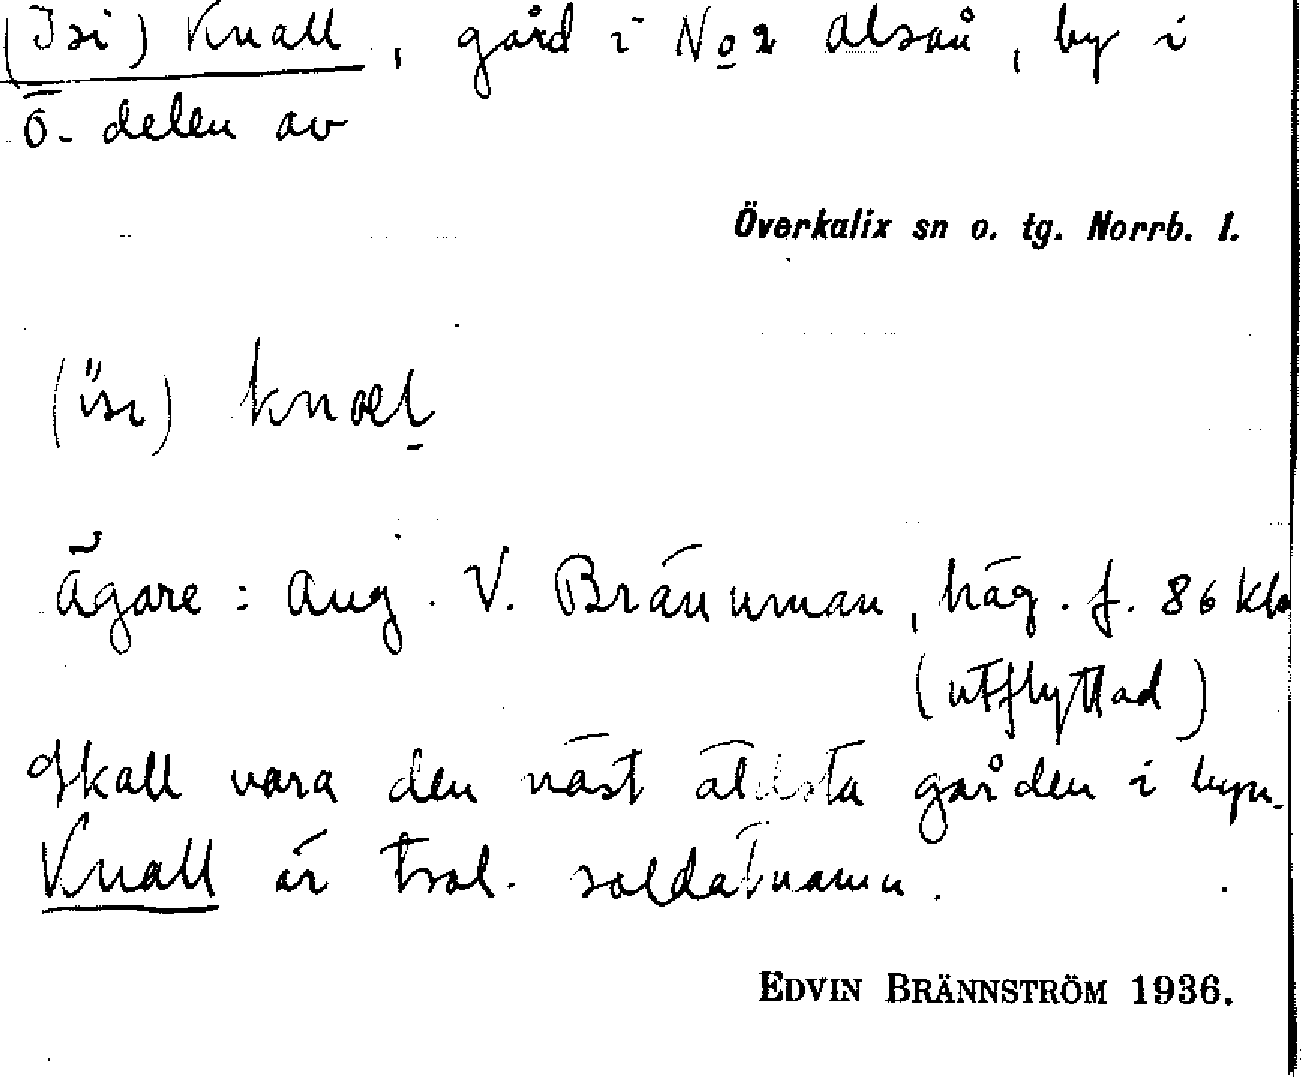 (Isi) Knall, gård i No 2 Alsån, by i
ö. delen av
Överkalix sn o. tg. Norrb. l.
knal̲
Ägare: Aug. V. Brännman, häg. f. 86 Klx
(utflyttad)
Skall vara den näst äldsta gården i byn.
Knall är trol. soldatnamn.
EDVIN BRÄNNSTRÖM 1936.